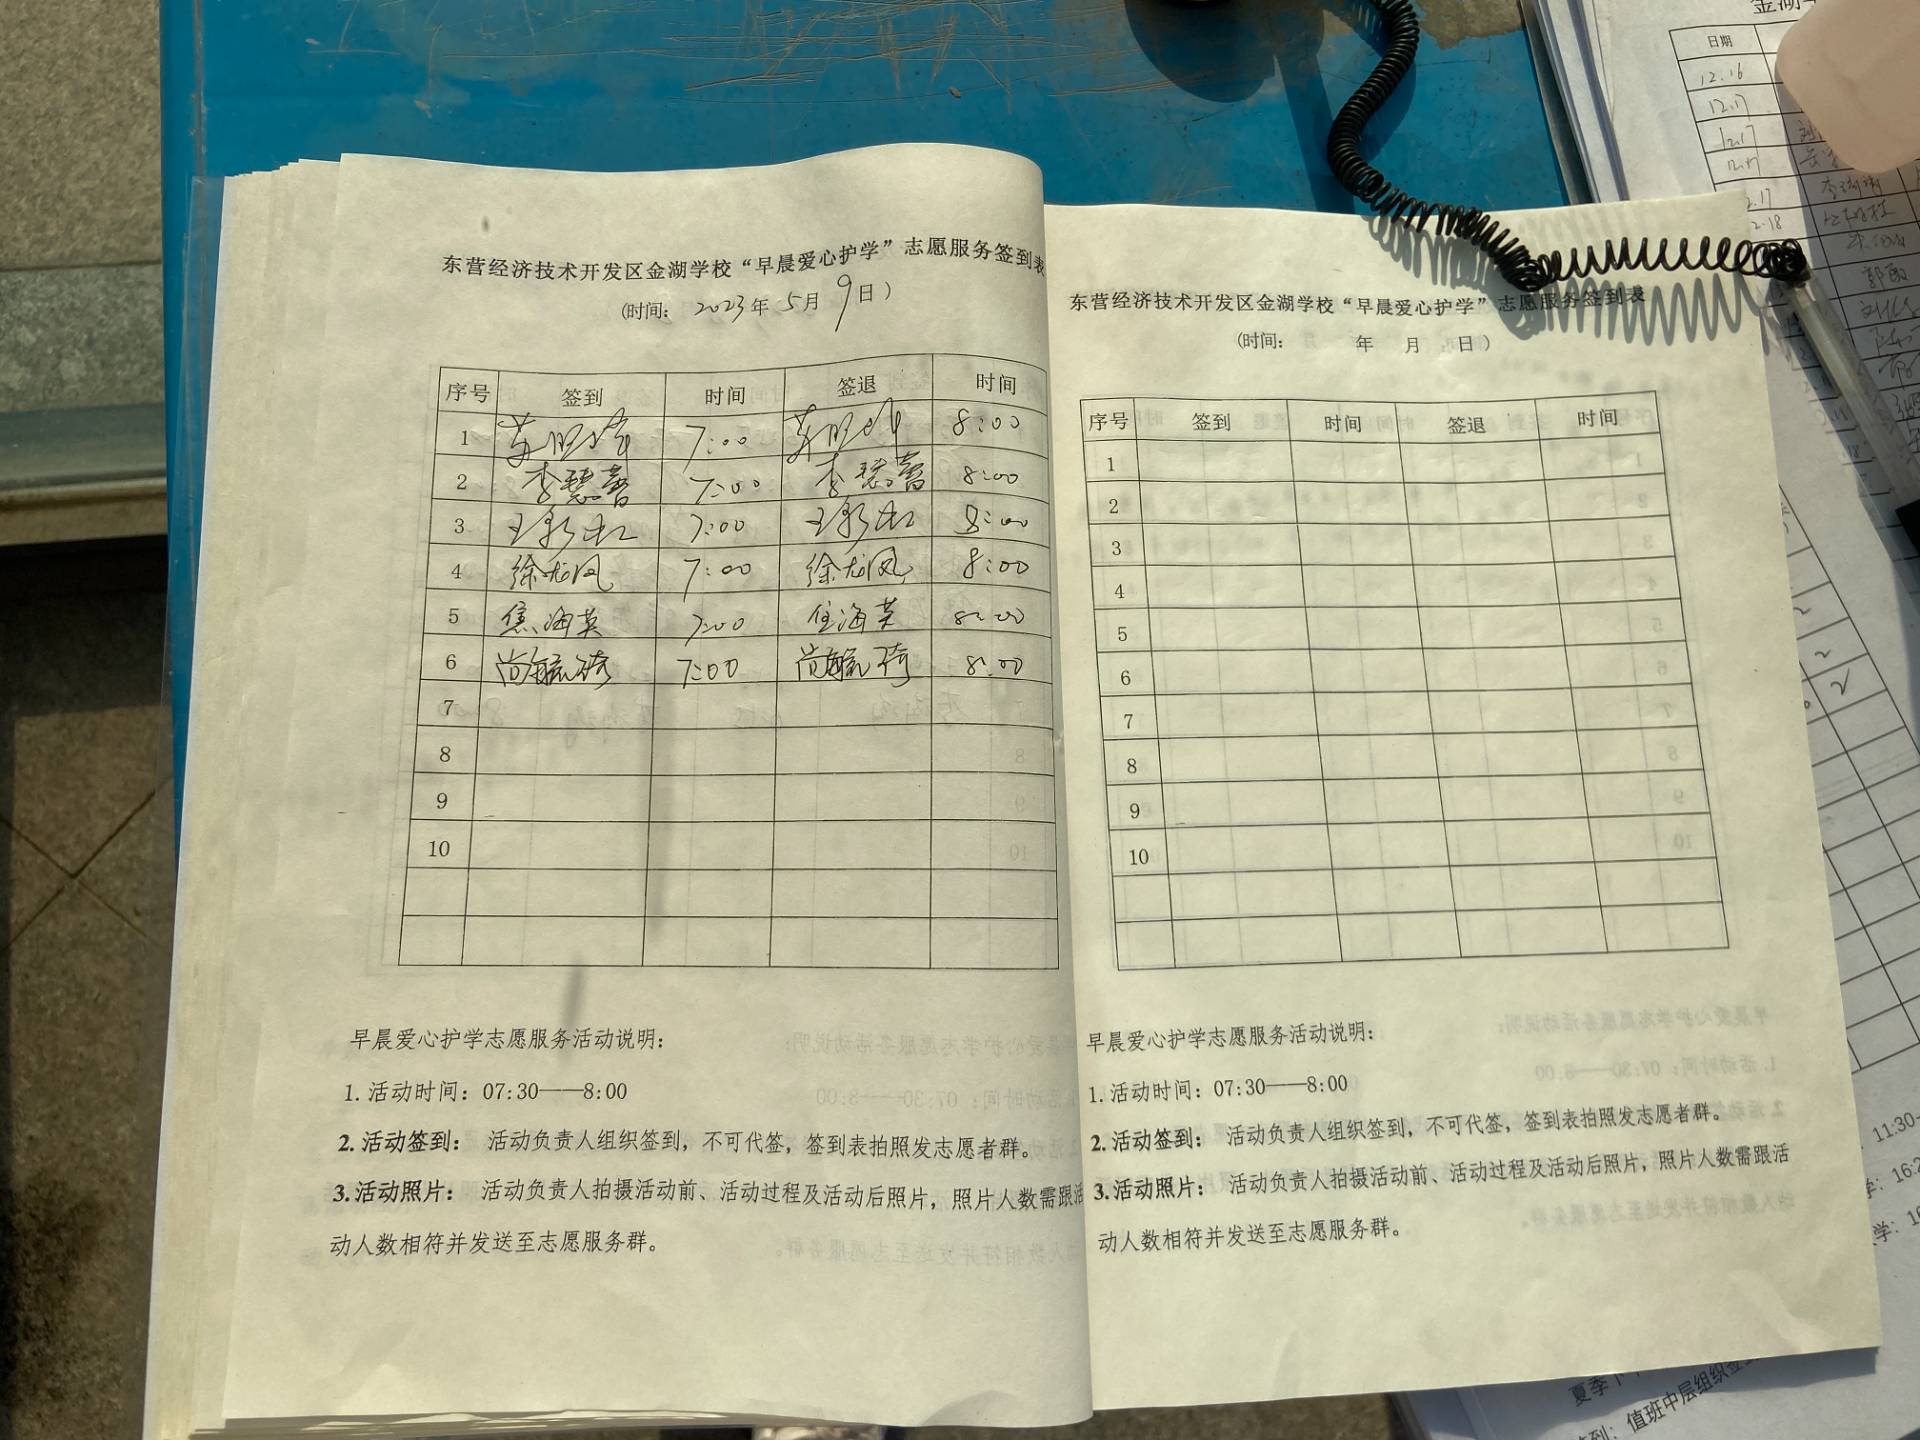 东营经济技术开发区金湖学校“早晨爱心护学”志愿服务签到表
(时间: 2023年 5月 9日)
序号 签到 时间 签退 时间
1 7:00 8:00
2 李慧蕾 7:00 李慧蕾 8:00
3 7:00 8:00
4 徐龙凤 7:00 徐龙凤 8:00
5 焦海英 7:00 焦海英 8:00
6 尚毓琦 7:00 尚毓琦 8:00
7
8
9
10
早晨爱心护学志愿服务活动说明:
1.活动时间: 07:30——8:00
2.活动签到: 活动负责人组织签到，不可代签，签到表拍照发志愿者群。
3.活动照片: 活动负责人拍摄活动前、活动过程及活动后照片，照片人数需跟活
动人数相符并发送至志愿服务群。
东营经济技术开发区金湖学校“早晨爱心护学”志愿服务签到表
(时间: 年 月 日)
序号 签到 时间 签退 时间
1
2
3
4
5
6
7
8
9
10
早晨爱心护学志愿服务活动说明:
1.活动时间: 07:30——8:00
2.活动签到: 活动负责人组织签到，不可代签，签到表拍照发志愿者群。
3.活动照片: 活动负责人拍摄活动前、活动过程及活动后照片，照片人数需跟活
动人数相符并发送至志愿服务群。
金湖
日期
12.16
12.17
12.17
12.17
2.17
2.18
11:30-
学: 16:2
学: 16
夏季
签到: 值班中层组织签